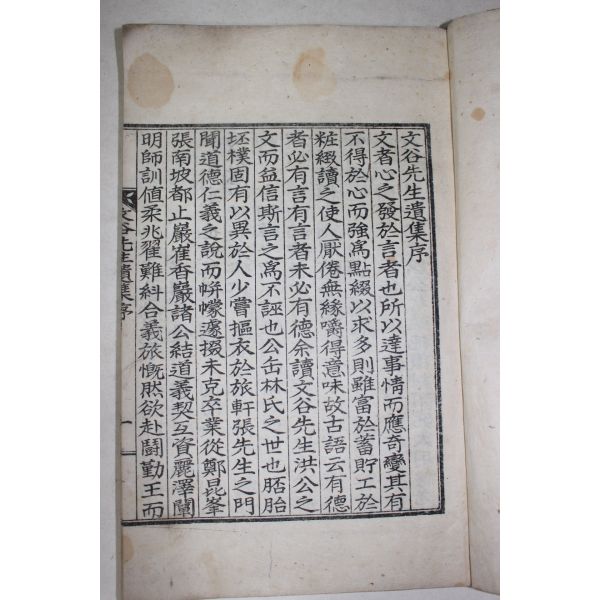 文谷先生遺集序
文者心之發於言者也所以達事情而應奇變其有
不得於心而強爲點綴以求多則雖富於蓄貯工於
粧緻讀之使人厭倦無緣嚼得意味故古語云有德
者必有言有言者未必有德余讀文谷先生洪公之
文而益信斯言之爲不誣也公缶林氏之世也胚胎
坯樸固有以異於人少嘗摳衣於旅軒張先生之門
聞道德仁義之說而帡幪遽掇未克卒業從鄭昆峯
張南坡都止巖崔香巖諸公結道義契互資麗澤闡
明師訓値柔兆翟難糾合義旅慨然欲赴鬪勤王而
文谷先生遺集序 一